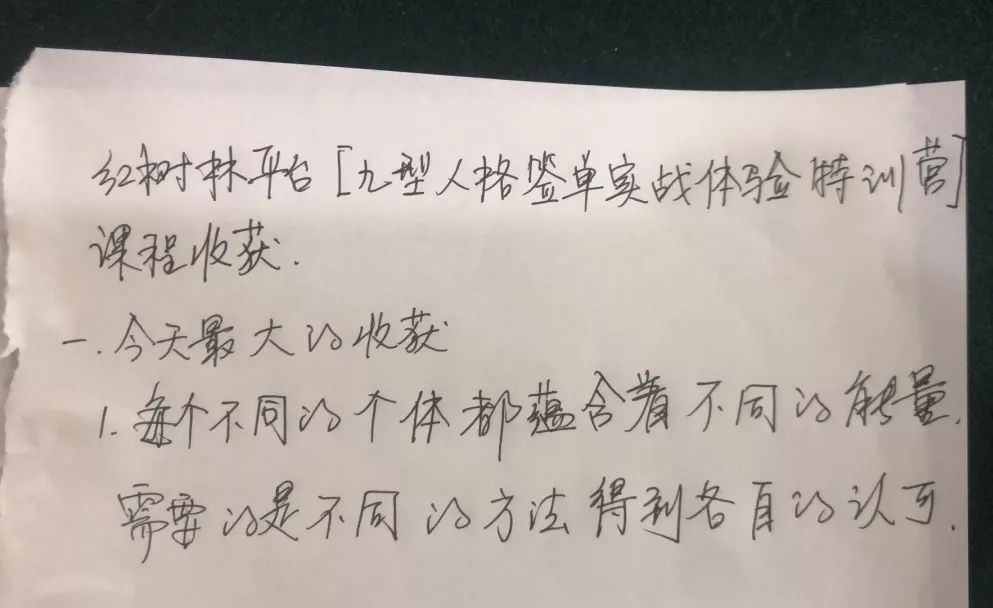 红树林平台[九型人格签单实战体验特训营]
课程收获.
一.今天最大的收获
1.每个不同的个体都蕴含着不同的能量.
需要的是不同的方法得到各自的认可.